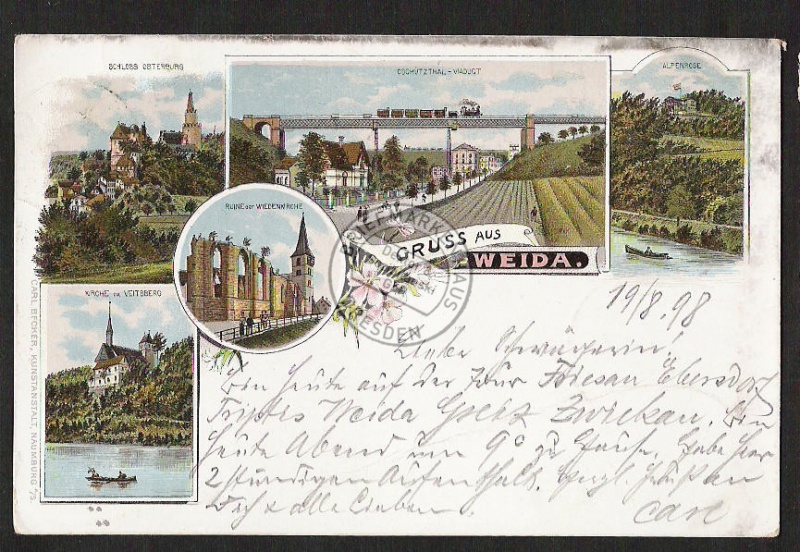 SCHLOSS OSTERBURG
OSCHÜTZTHAL-VIADUCT
ALPENROSE
RUINE der WIEDENKIRCHE
GRUSS AUS
WEIDA.
KIRCHE zu VEITSBERG
CARL BECKER, KUNSTANSTALT, NAUMBURG a/S.
BRIEFMARKENHAUS
DRESDEN
19/8.98
Liebe Schwägerin!
Bin heute auf der Tour Ebersdorf
Triptis Weida Greiz Zwickau. Bin
heute Abend um 9° zu Hause, habe hier
2 stündigen Aufenthalt. Hrzl. Gruß an
Dich & alle Lieben.
Carl